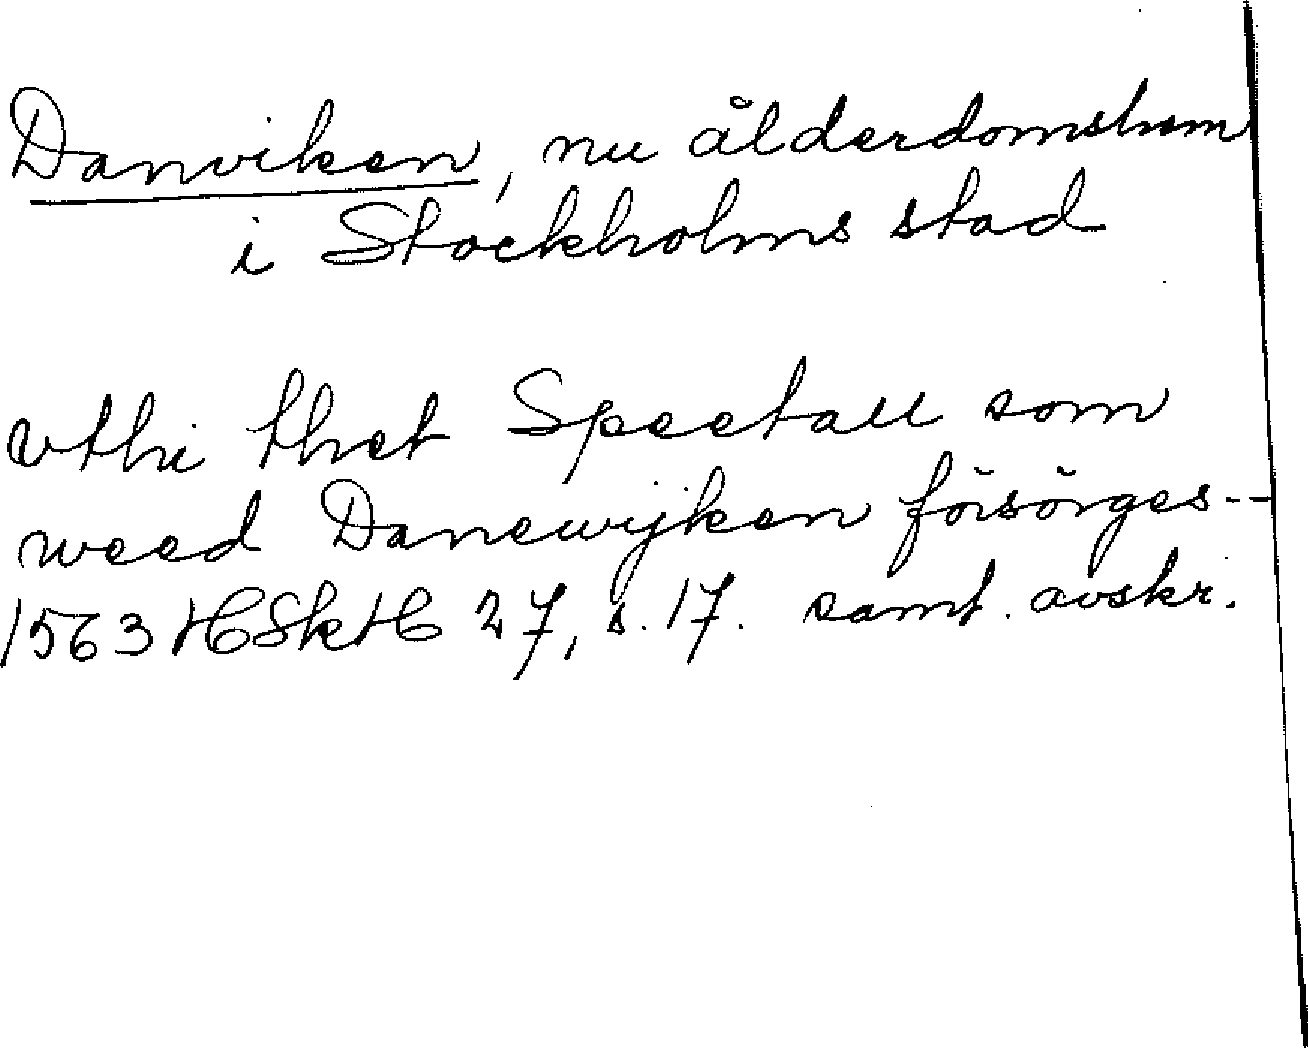 Danviken, nu ålderdomshem
i Stockholms stad
vthi thet Speetall som
weed Danewijken försörges --
1563 HSkH 27, s. 17. samt. avskr.